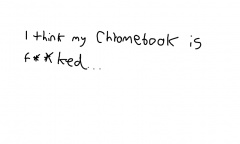 I think my Chromebook is
f**ked...